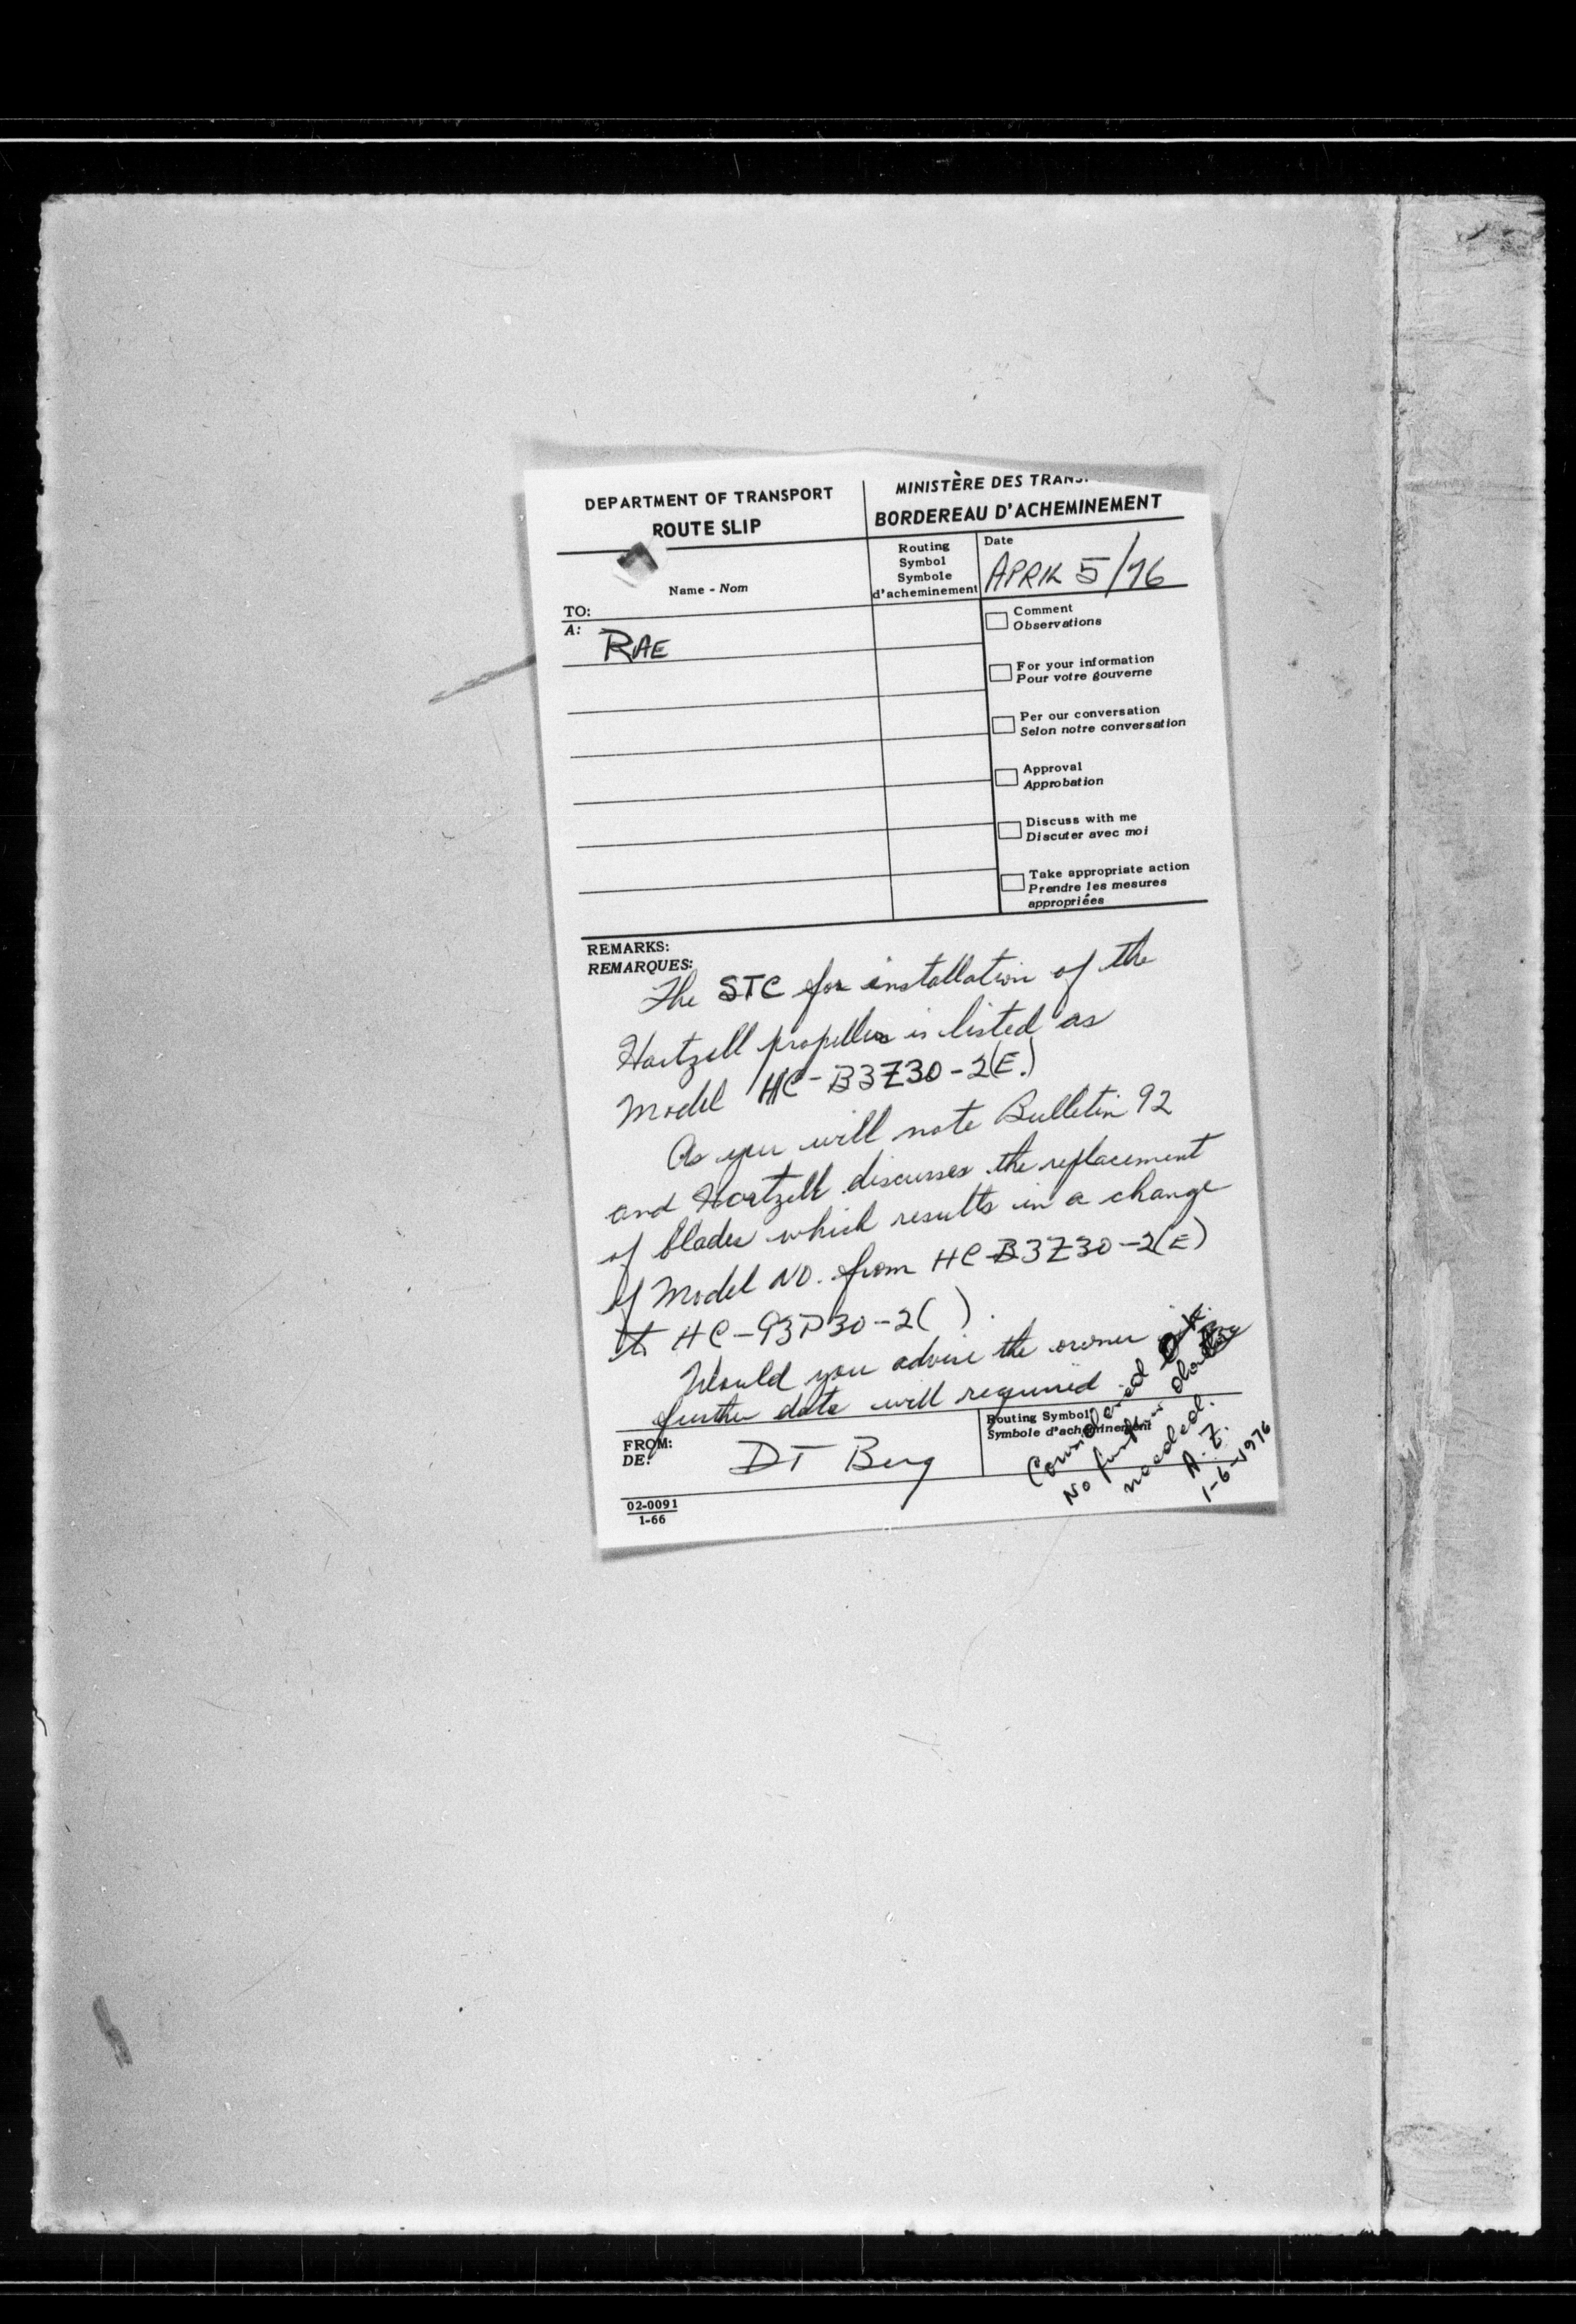 DEPARTMENT OF TRANSPORT
ROUTE SLIP
MINISTÈRE DES
BORDEREAU D'ACHEMINEMENT
Name - Nom
Routing
Symbol
Symbole
d'acheminement
Date
APRIL 5/76
TO:
A:
RAE
Comment
Observations
For your information
Pour votre gouverne
Per our conversation
Selon notre conversation
Approval
Approbation
Discuss with me
Discuter avec moi
Take appropriate action
Prendre les mesures
appropriées
REMARKS:
REMARQUES:
The STC for installation of the
Hartzell propeller is listed as
Model HC-B3Z30-2(E.)
As you will note Bulletin 92
and Hartzell discusses the replacement
of blades which results in a change
of Model NO. from HC-B3Z30-2(E)
to HC-93P30-2( ).
Would you advise the owner
further data will required
FROM:
DE:
DT Berg
Routing Symbol
Symbole d'acheminement
Considered
No further
needed.
A.Z.
1-6-1976
02-0091
1-66